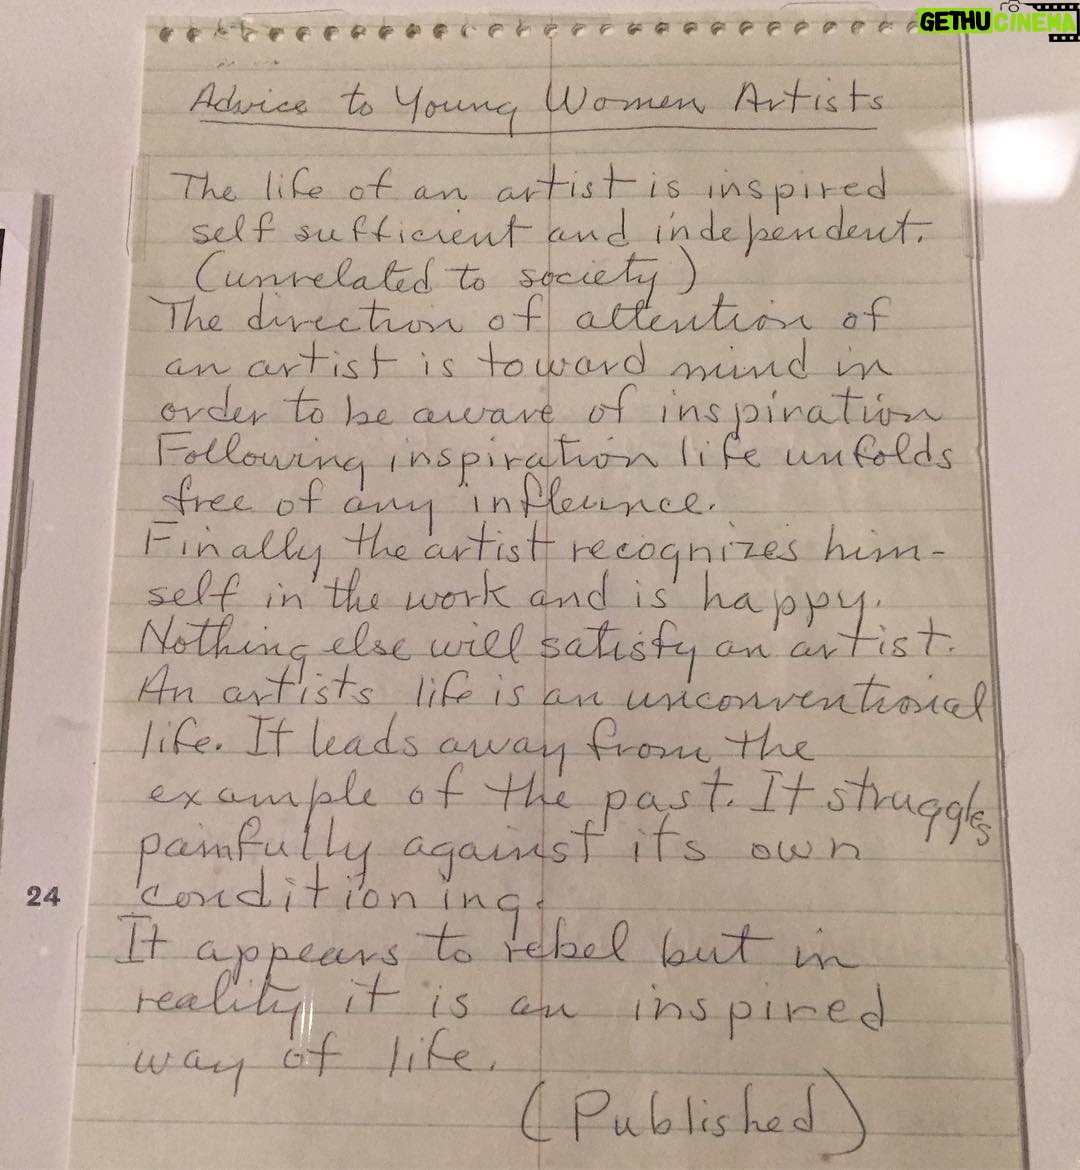 GETHUCINEMA
Advice to Young Women Artists
The life of an artist is inspired
self sufficient and independent.
(unrelated to society)
The direction of attention of
an artist is toward mind in
order to be aware of inspiration
Following inspiration life unfolds
free of any infleunce.
Finally the artist recognizes him-
self in the work and is happy.
Nothing else will satisfy an artist.
An artists life is an unconventional
life. It leads away from the
example of the past. It struggles
painfully against its own
conditioning.
It appears to rebel but in
reality it is an inspired
way of life.
(Published)
24